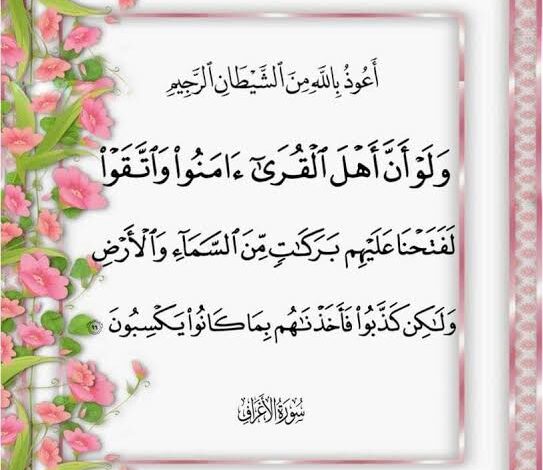 أَعُوذُ بِاللَّهِ مِنَ الشَّيْطَانِ الرَّجِيمِ
وَلَوْ أَنَّ أَهْلَ ٱلْقُرَىٰٓ ءَامَنُوا۟ وَٱتَّقَوْا۟
لَفَتَحْنَا عَلَيْهِم بَرَكَٰتٍ مِّنَ ٱلسَّمَآءِ وَٱلْأَرْضِ
وَلَٰكِن كَذَّبُوا۟ فَأَخَذْنَٰهُم بِمَا كَانُوا۟ يَكْسِبُونَ ٩٦
سُورَةُ الأَعْرَافِ